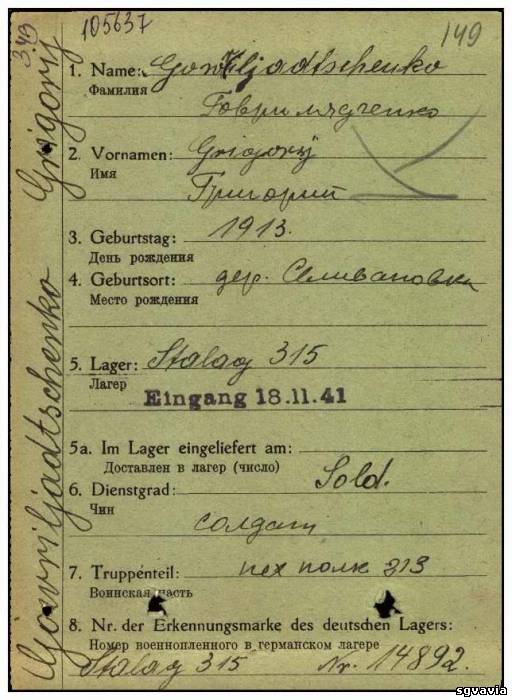 105637
149
3.49
Gowriljadtschenko Grigorij
1. Name: Gowriljadtschenko
Фамилия
Говрилядченко
2. Vornamen: Grigorij
Имя
Григорий
3. Geburtstag: 1913.
День рождения
4. Geburtsort: дер. Селивановка
Место рождения
5. Lager: Stalag 315
Лагер
Eingang 18.11.41
5a. Im Lager eingeliefert am:
Доставлен в лагер (число)
6. Dienstgrad: Sold.
Чин
солдат
7. Truppenteil: пех полк 313
Воинская часть
8. Nr. der Erkennungsmarke des deutschen Lagers:
Номер военнопленного в германском лагере
Stalag 315 Nr. 14892.
sgvavia